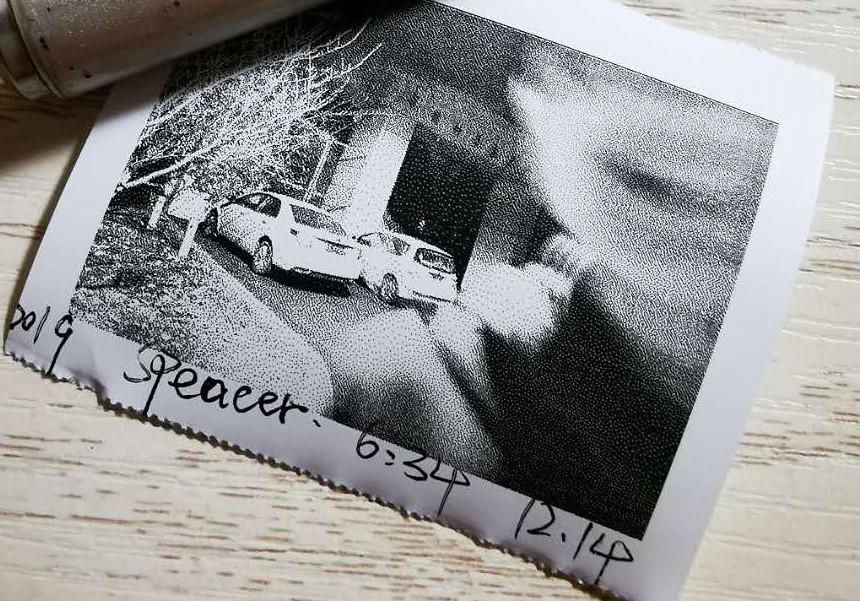 2019 Speacer. 6:34 12.14